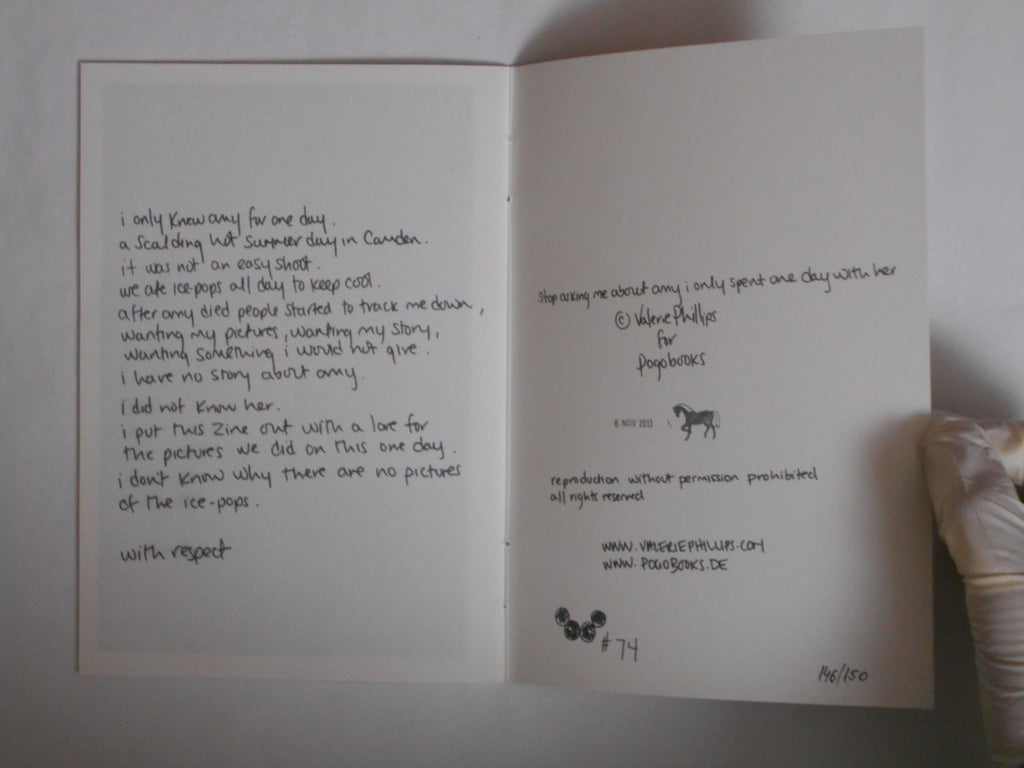 i only knew amy for one day.
a scalding hot summer day in Camden.
it was not an easy shoot.
we ate ice-pops all day to keep cool.
after amy died people started to track me down,
wanting my pictures, wanting my story,
wanting something i would not give.
i have no story about amy.
i did not know her.
i put this zine out with a love for
the pictures we did on this one day.
i don't know why there are no pictures
of the ice-pops.
with respect
stop asking me about amy i only spent one day with her
© Valerie Phillips
for
pogobooks
6 NOV 2013
reproduction without permission prohibited
all rights reserved
WWW.VALERIEPHILLIPS.COM
WWW.POGOBOOKS.DE
#74
146/150